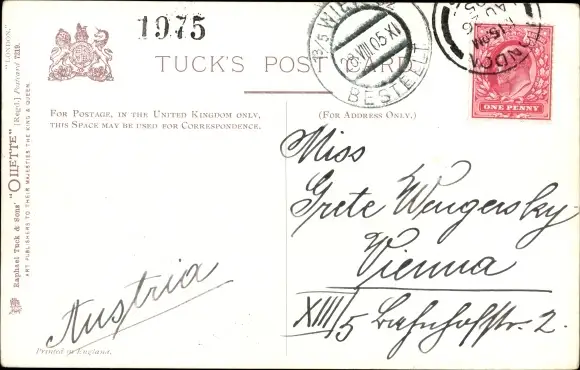 1975
TUCK'S POST CARD
FOR POSTAGE, IN THE UNITED KINGDOM ONLY,
THIS SPACE MAY BE USED FOR CORRESPONDENCE.
(FOR ADDRESS ONLY.)
"LONDON."
Raphael Tuck & Sons' "OILETTE" [Regd.] Postcard 7219.
ART PUBLISHERS TO THEIR MAJESTIES THE KING & QUEEN.
WIEN
28 VIII 05 XI
BESTELLT
LONDON
AU 26
ONE PENNY
Miss
Grete Wengersky
Vienna
XIII/5 Bahnhofstr. 2.
Austria
Printed in England.